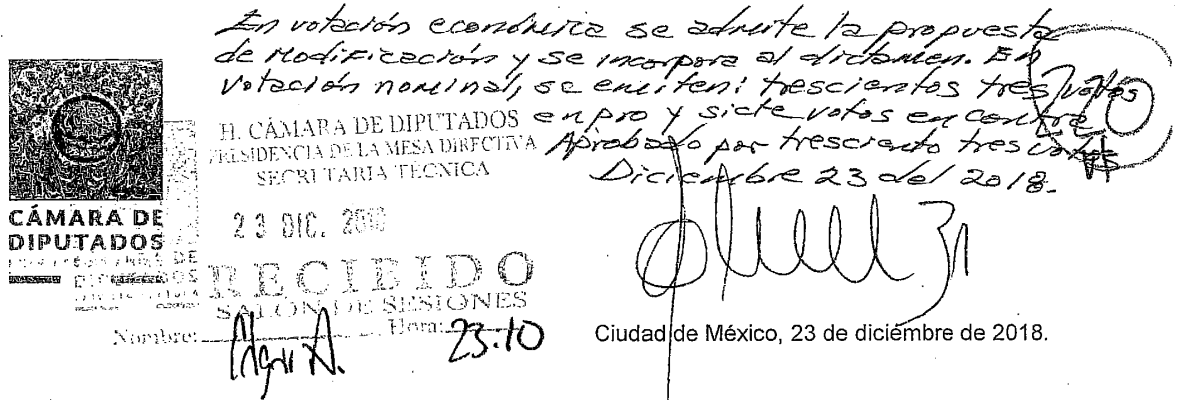 En votación económica se admite la propuesta
de modificación y se incorpora al dictamen. En
votación nominal, se emiten: trescientos tres votos
en pro y siete votos en contra
Aprobado por tresciento tres votos
Diciembre 23 del 2018.
H. CÁMARA DE DIPUTADOS
PRESIDENCIA DE LA MESA DIRECTIVA
SECRETARIA TECNICA
CÁMARA DE
DIPUTADOS
23 DIC. 2018
RECIBIDO
SALON DE SESIONES
Nombre: Hora: 23:10
Ciudad de México, 23 de diciembre de 2018.